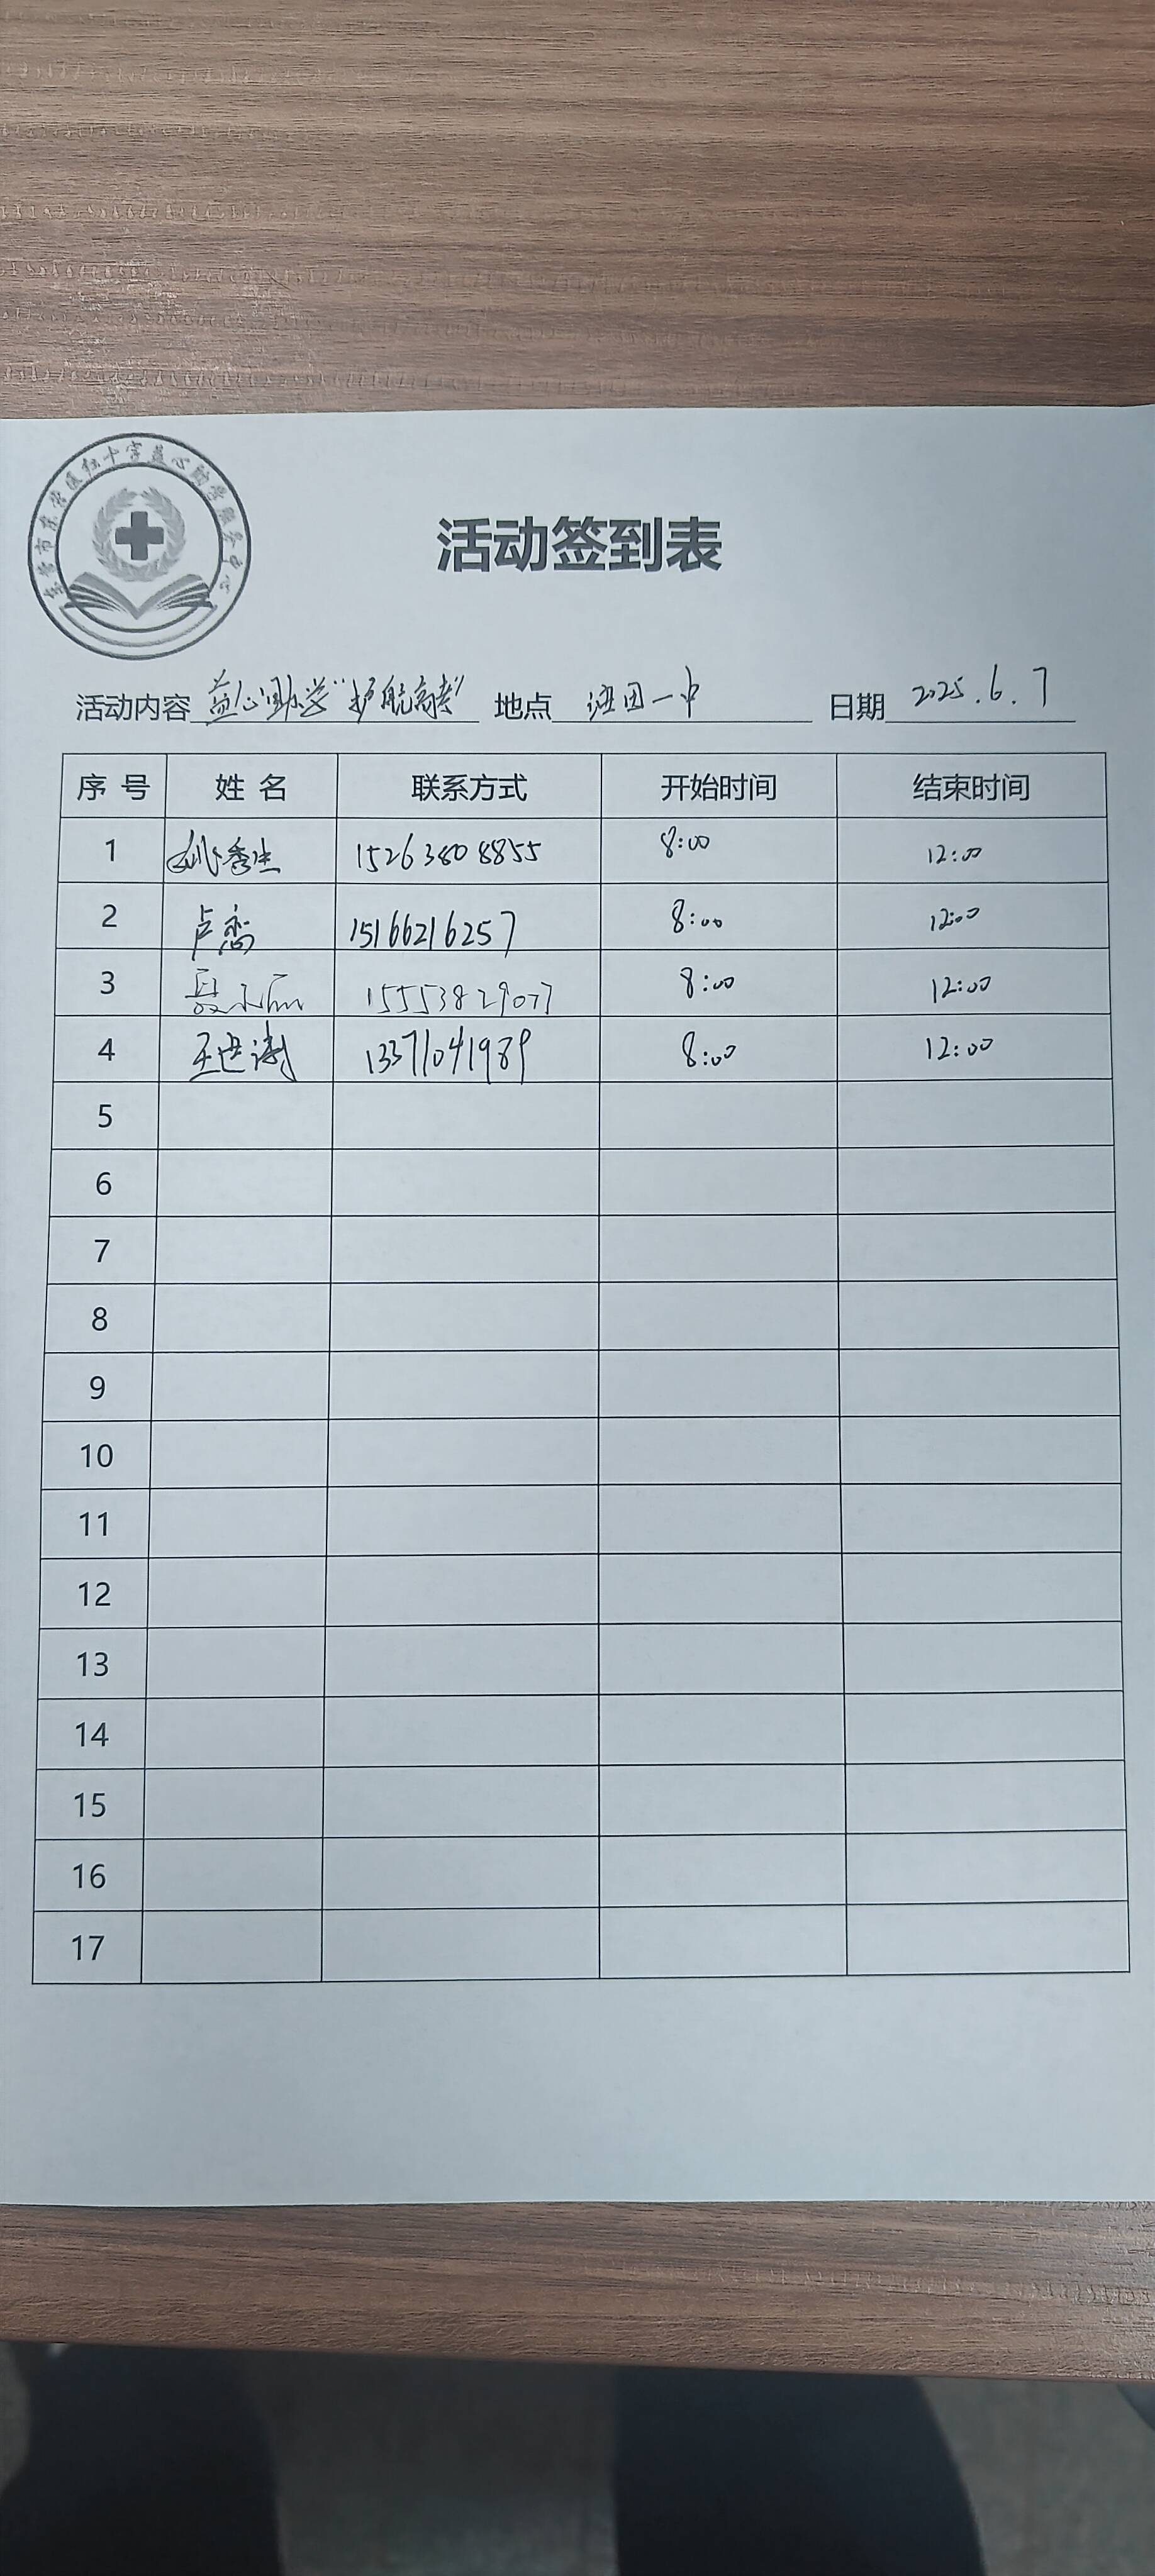 东营市东营区红十字益心助学服务中心
活动签到表
活动内容 益心助学"护航高考" 地点 一中 日期 2025.6.7
序号 姓名 联系方式 开始时间 结束时间
1 姚秀生 15263808855 8:00 12:00
2 卢恋 15166216257 8:00 12:00
3 15553829077 8:00 12:00
4 王进涛 13371041989 8:00 12:00
5
6
7
8
9
10
11
12
13
14
15
16
17